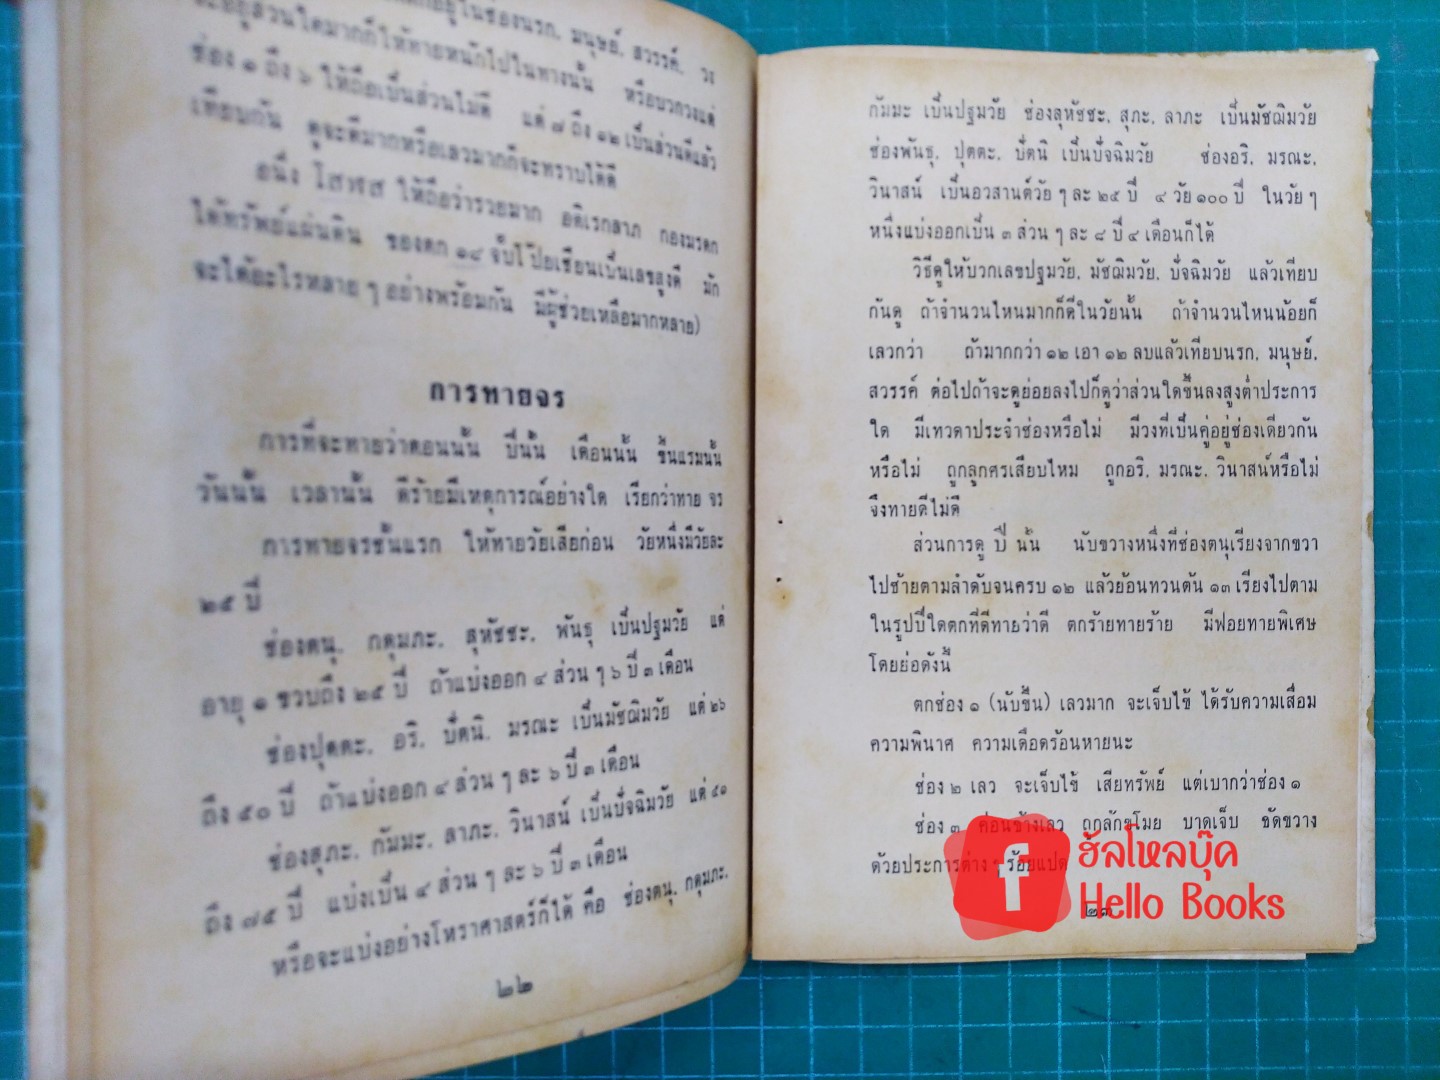 อยู่ในช่องนรก, มนุษย์, สวรรค์, วง
อยู่ส่วนใดมากก็ให้ทายหนักไปในทางนั้น หรือบวกวงแต่
ช่อง ๑ ถึง ๖ ให้ถือเป็นส่วนไม่ดี แต่ ๗ ถึง ๑๒ เป็นส่วนดีแล้ว
เทียบกัน ดูจะดีมากหรือเลวมากก็จะทราบได้ดี
อนึ่ง โสฬส ให้ถือว่ารวยมาก อดิเรกลาภ กองมรดก
ได้ทรัพย์แผ่นดิน ของตก ๑๔ จับโป๊ยเซียนเป็นเลขสูงดี มัก
จะได้อะไรหลาย ๆ อย่างพร้อมกัน มีผู้ช่วยเหลือมากหลาย)
การทายจร
การที่จะทายว่าตอนนั้น ปีนั้น เดือนนั้น ขึ้นแรมนั้น
วันนั้น เวลานั้น ดีร้ายมีเหตุการณ์อย่างใด เรียกว่าทาย จร
การทายจรชั้นแรก ให้ทายวัยเสียก่อน วัยหนึ่งมีวัยละ
๒๕ ปี
ช่องตนุ, กดุมภะ, สุหัชชะ, พันธุ เป็นปฐมวัย แต่
อายุ ๑ ขวบถึง ๒๕ ปี ถ้าแบ่งออก ๔ ส่วน ๆ ๖ ปี ๓ เดือน
ช่องปุตตะ, อริ, ปัตนิ, มรณะ เป็นมัชฌิมวัย แต่ ๒๖
ถึง ๕๐ ปี ถ้าแบ่งออก ๔ ส่วน ๆ ละ ๖ ปี ๓ เดือน
ช่องสุภะ, กัมมะ, ลาภะ, วินาสน์ เป็นปัจฉิมวัย แต่ ๕๑
ถึง ๗๕ ปี แบ่งเป็น ๔ ส่วน ๆ ละ ๖ ปี ๓ เดือน
หรือจะแบ่งอย่างโหราศาสตร์ก็ได้ คือ ช่องตนุ, กดุมภะ,
๒๒
กัมมะ เป็นปฐมวัย ช่องสุหัชชะ, สุภะ, ลาภะ เป็นมัชฌิมวัย
ช่องพันธุ, ปุตตะ, ปัตนิ เป็นปัจฉิมวัย ช่องอริ, มรณะ,
วินาสน์ เป็นอวสานต์วัย ๆ ละ ๒๕ ปี ๔ วัย ๑๐๐ ปี ในวัย ๆ
หนึ่งแบ่งออกเป็น ๓ ส่วน ๆ ละ ๘ ปี ๔ เดือนก็ได้
วิธีดูให้บวกเลขปฐมวัย, มัชฌิมวัย, ปัจฉิมวัย แล้วเทียบ
กันดู ถ้าจำนวนไหนมากก็ดีในวัยนั้น ถ้าจำนวนไหนน้อยก็
เลวกว่า ถ้ามากกว่า ๑๒ เอา ๑๒ ลบแล้วเทียบนรก, มนุษย์,
สวรรค์ ต่อไปถ้าจะดูย่อยลงไปก็ดูว่าส่วนใดขึ้นลงสูงต่ำประการ
ใด มีเทวดาประจำช่องหรือไม่ มีวงที่เป็นคู่อยู่ช่องเดียวกัน
หรือไม่ ถูกลูกศรเสียบไหม ถูกอริ, มรณะ, วินาสน์หรือไม่
จึงทายดีไม่ดี
ส่วนการดู ปี นั้น นับขวางหนึ่งที่ช่องตนุเรียงจากขวา
ไปซ้ายตามลำดับจนครบ ๑๒ แล้วย้อนทวนต้น ๑๓ เรียงไปตาม
ในรูปปีใดตกที่ดีทายว่าดี ตกร้ายทายร้าย มีฟอยทายพิเศษ
โดยย่อดังนี้
ตกช่อง ๑ (นับขึ้น) เลวมาก จะเจ็บไข้ ได้รับความเสื่อม
ความพินาศ ความเดือดร้อนหายนะ
ช่อง ๒ เลว จะเจ็บไข้ เสียทรัพย์ แต่เบากว่าช่อง ๑
ช่อง ๓ ค่อนข้างเลว ถูกลักขโมย บาดเจ็บ ขัดขวาง
ด้วยประการต่าง ๆ ร้อยแปด
๒๓
f
ฮัลโหลบุ๊ค
Hello Books